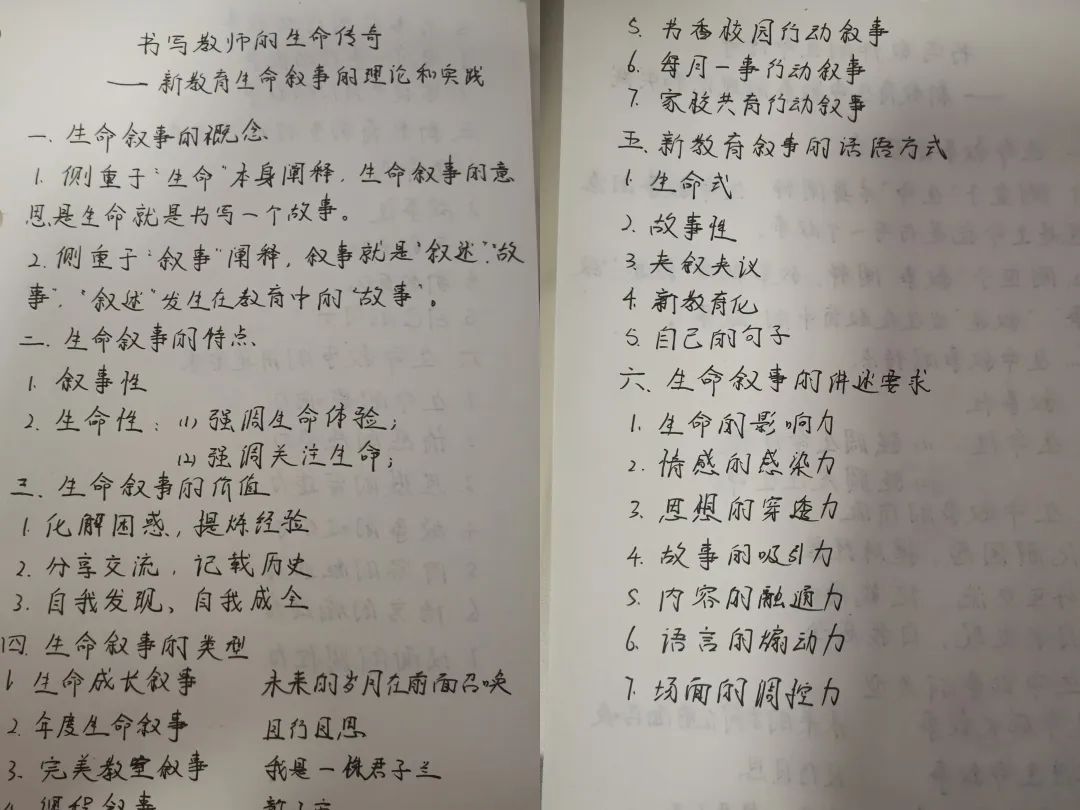 书写教师的生命传奇
—— 新教育生命叙事的理论和实践
一、生命叙事的概念
1. 侧重于“生命”本身阐释，生命叙事的意
思是生命就是书写一个故事。
2. 侧重于“叙事”阐释，叙事就是“叙述”“故
事”，“叙述”发生在教育中的“故事”。
二、生命叙事的特点
1. 叙事性
2. 生命性：(1) 强调生命体验；
(2) 强调关注生命；
三、生命叙事的价值
1. 化解困惑，提炼经验
2. 分享交流，记载历史
3. 自我发现、自我成全
四、生命叙事的类型
1. 生命成长叙事 未来的岁月在前面召唤
2. 年度生命叙事 且行且思
3. 完美教室叙事 我是一株君子兰
4. 课程叙事
5. 书香校园行动叙事
6. 每月一事行动叙事
7. 家校共育行动叙事
五、新教育叙事的话语方式
1. 生命式
2. 故事性
3. 夹叙夹议
4. 新教育化
5. 自己的句子
六、生命叙事的讲述要求
1. 生命的影响力
2. 情感的感染力
3. 思想的穿透力
4. 故事的吸引力
5. 内容的融通力
6. 语言的煽动力
7. 场面的调控力